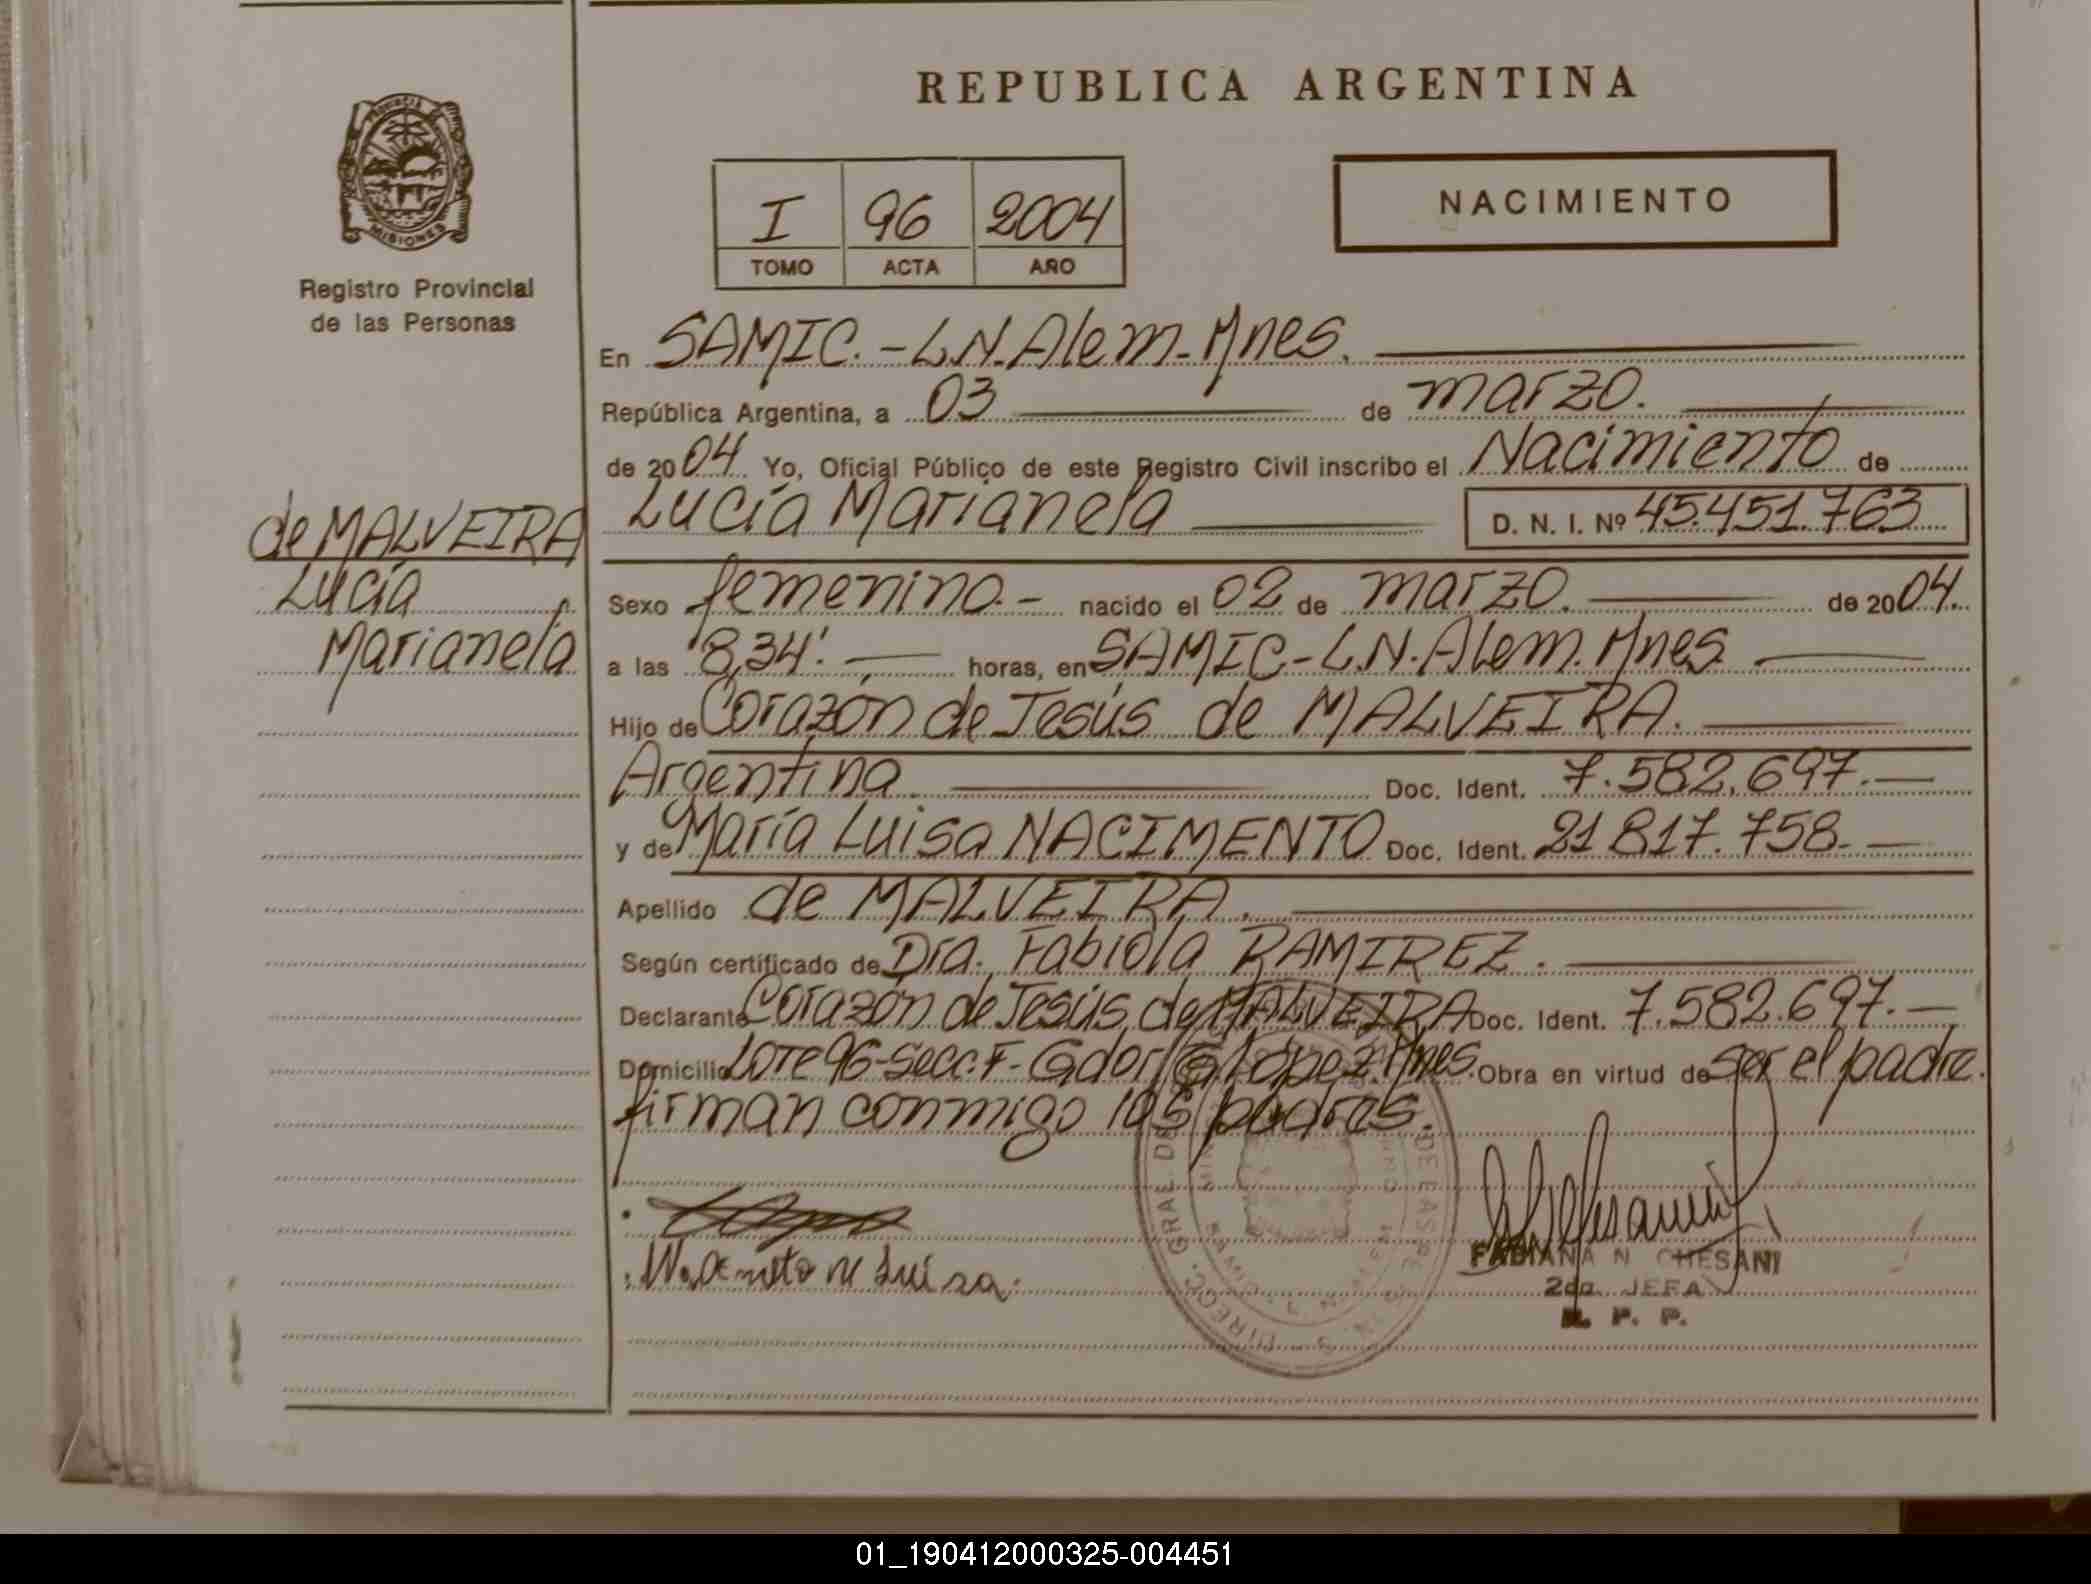 REPUBLICA ARGENTINA
PROVINCIA
MISIONES
Registro Provincial
de las Personas
I 96 2004
TOMO ACTA AÑO
NACIMIENTO
En SAMIC.-L.N.Alem-Mnes.
República Argentina, a 03 de marzo.
de 2004 Yo, Oficial Público de este Registro Civil inscribo el Nacimiento de
Lucía Marianela D. N. I. Nº 45.451.763
de MALVEIRA
Lucía
Marianela
Sexo femenino.- nacido el 02 de marzo. de 2004.
a las 8,34'. horas, en SAMIC-L.N.Alem.Mnes.
Hijo de Corazón de Jesús de MALVEIRA.
Argentina. Doc. Ident. 7.582.697.-
y de María Luisa NACIMENTO Doc. Ident. 21817.758.-
Apellido de MALVEIRA.
Según certificado de Dra. Fabiola RAMIREZ.
Declarante Corazón de Jesús de MALVEIRA Doc. Ident. 7.582.697.-
Domicilio Lote 96-Secc.F-Gdor López Mnes. Obra en virtud de ser el padre.
firman conmigo los padres.
FABIANA N CHESANI
2da. JEFA
R. P. P.
DIRECC. GRAL DE
01_190412000325-004451